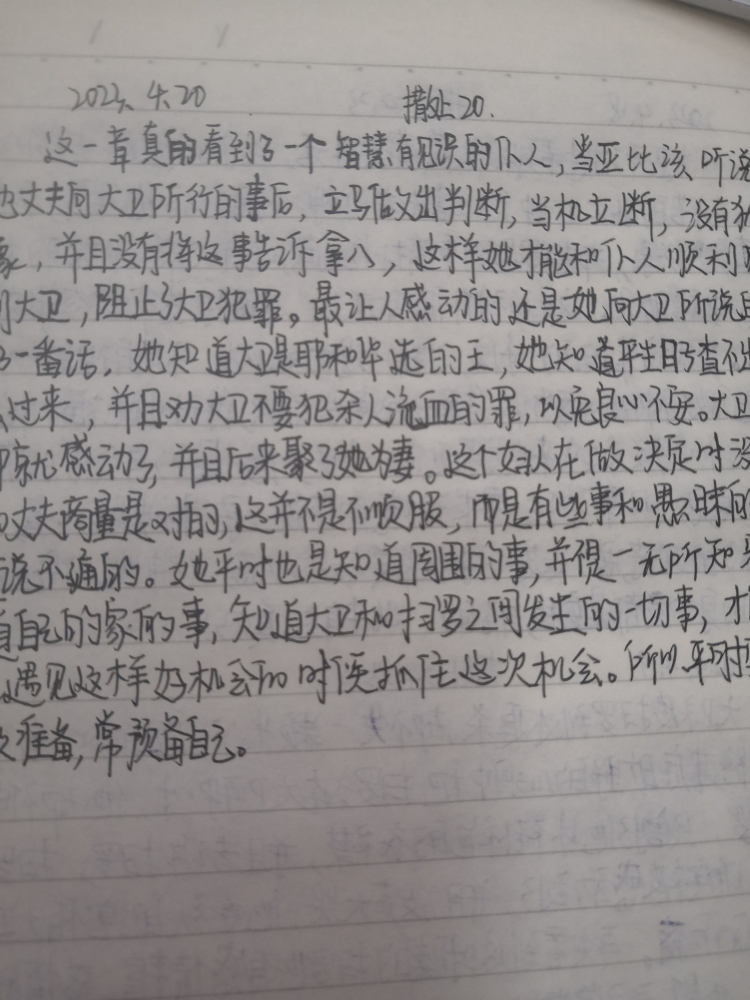 2023.4.20 撒上20.
这一章真的看到了一个智慧有见识的仆人,当亚比该听说
她丈夫向大卫所行的事后,立马做出判断,当机立断,没有犹
豫,并且没有将这事告诉拿八,这样她才能和仆人顺利
到大卫,阻止了大卫犯罪。最让人感动的还是她向大卫所说的
一番话,她知道大卫是耶和华选的王,她知道平生日子查不出
过来,并且劝大卫不要犯杀人流血的罪,以免良心不安。大卫
就感动了,并且后来聚了她为妻。这个妇人在做决定时没
丈夫商量是对的,这并不是不顺服,而是有些事和愚昧的
说不通的。她平时也是知道周围的事,并非一无所知
自己的家的事,知道大卫和扫罗之间发生的一切事,才
遇见这样好机会的时候抓住这次机会。所以平时
准备,常预备自己。